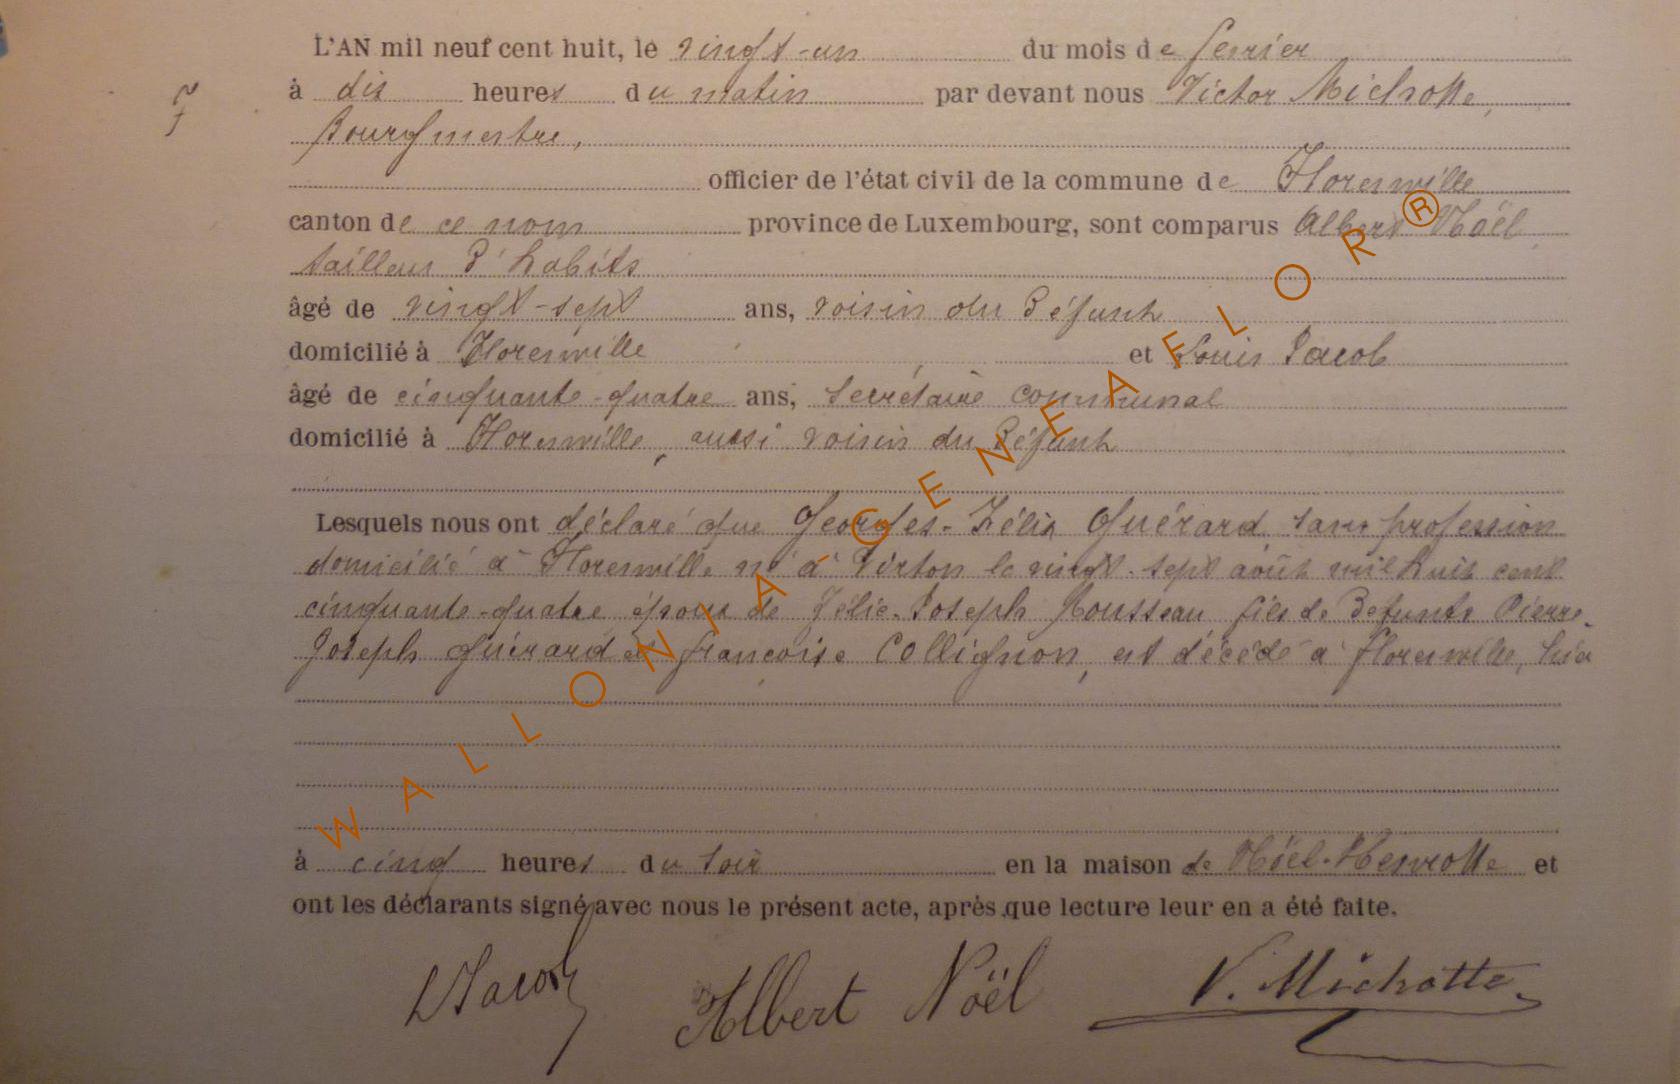 L'AN mil neuf cent huit, le vingt-un du mois de fevrier
à dix heures du matin par devant nous Victor Michotte,
Bourgmestre,
officier de l'état civil de la commune de Florenville
canton de ce nom province de Luxembourg, sont comparus Albert Noël,
tailleur d'habits
âgé de vingt-sept ans, voisin du défunt
domicilié à Florenville et Louis Jacob
âgé de cinquante-quatre ans, secrétaire communal
domicilié à Florenville, aussi voisin du défunt
Lesquels nous ont déclaré que Georges-Félix Guérard sans profession
domicilié à Florenville né à Virton le vingt-sept août mil huit cent
cinquante-quatre époux de Joseph Rousseau fils de defunts Pierre-
Joseph Guérard et françoise Collignon, est décédé à florenville, hier
à cinq heures du soir en la maison de Noël-Henrotte et
ont les déclarants signé avec nous le présent acte, après que lecture leur en a été faite.
LJacob Albert Noël V. Michotte
WALLONIA-GENEAFLOR®